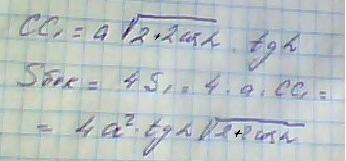 CC₁ = a√(2+2cosα) · tgα
Sбок = 4S₁ = 4 · a · CC₁ =
= 4a² · tgα√(2+2cosα)